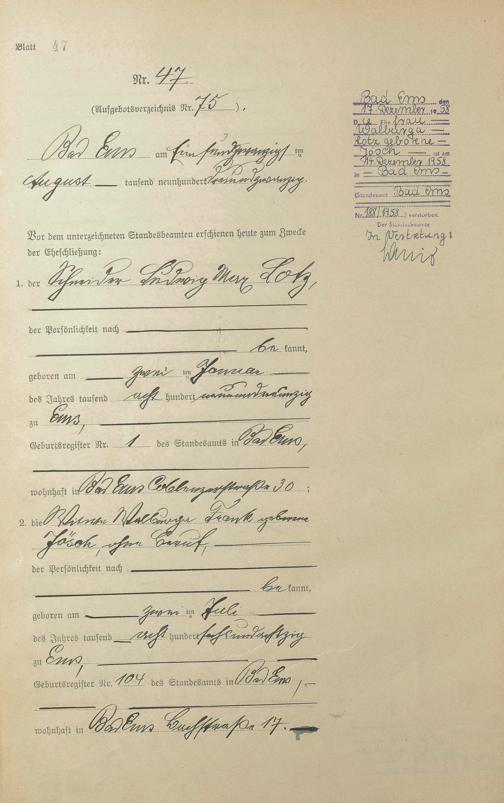 Blatt 47
Nr. 47.
(Aufgebotsverzeichnis Nr. 75).
Bad Ems am Ein fünfzwanzigsten
August — tausend neunhundert
Vor dem unterzeichneten Standesbeamten erschienen heute zum Zwecke
der Eheschließung:
1. der Schneider Ludwig Max Lotz,
der Persönlichkeit nach
be kannt,
geboren am zwei ten Januar
des Jahres tausend acht hundert neunundneunzig
zu Ems,
Geburtsregister Nr. 1 des Standesamts in Bad Ems,
wohnhaft in Bad Ems Coblenzerstraße 30 ;
2. die Witwe Walburga Frank geborene
Jösch, ohne Beruf,
der Persönlichkeit nach
be kannt,
geboren am zwei ten Juli
des Jahres tausend acht hundert sechsundachtzig
zu Ems,
Geburtsregister Nr. 104 des Standesamts in Bad Ems,
wohnhaft in Bad Ems Bachstraße 17.
Bad Ems den
17. Dezember 1958
Die Ehefrau
Walburga
Lotz geborene
Jösch ist am
14. Dezember 1958
in Bad Ems
Standesamt Bad Ems
Nr. 188/1958 verstorben.
Der Standesbeamte
In Vertretung: